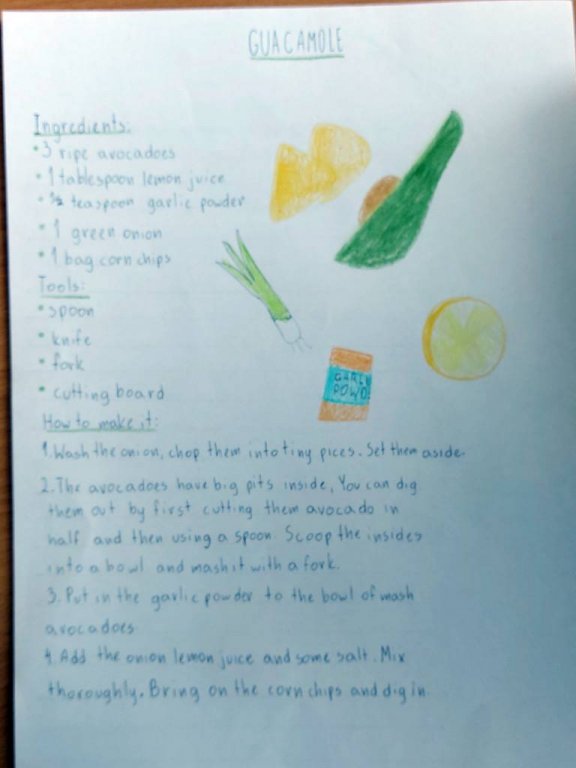 GUACAMOLE
Ingredients:
• 3 ripe avocadoes
• 1 tablespoon lemon juice
• ½ teaspoon garlic powder
• 1 green onion
• 1 bag corn chips
Tools:
• spoon
• knife
• fork
• cutting board
GARLIC
POWD
How to make it:
1. Wash the onion, chop them into tiny pices. Set them aside.
2. The avocadoes have big pits inside, You can dig
them out by first cutting them avocado in
half and then using a spoon. Scoop the insides
into a bowl and mash it with a fork.
3. Put in the garlic powder to the bowl of mash
avocadoes
4. Add the onion lemon juice and some salt. Mix
thoroughly. Bring on the corn chips and dig in.